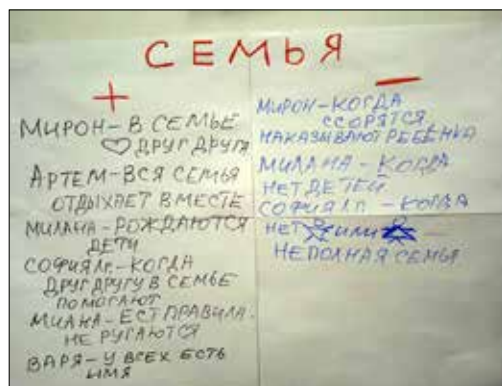 СЕМЬЯ
+
МИРОН – В СЕМЬЕ
♡ ДРУГ ДРУГА
АРТЕМ – ВСЯ СЕМЬЯ
ОТДЫХАЕТ ВМЕСТЕ
МИЛАНА – РОЖДАЮТСЯ
ДЕТИ
СОФИЯ Лг. – КОГДА
ДРУГ ДРУГУ В СЕМЬЕ
ПОМОГАЮТ
МИАНА – ЕСТ ПРАВИЛА.
НЕ РУГАЮТСЯ
ВАРЯ – У ВСЕХ ЕСТЬ
ИМЯ
–
МИРОН – КОГДА
ССОРЯТСЯ,
НАКАЗЫВАЮТ РЕБЁНКА
МИЛАНА – КОГДА
НЕТ ДЕТЕЙ
СОФИЯ Лг. – КОГДА
НЕТ ИЛИ
НЕПОЛНАЯ СЕМЬЯ